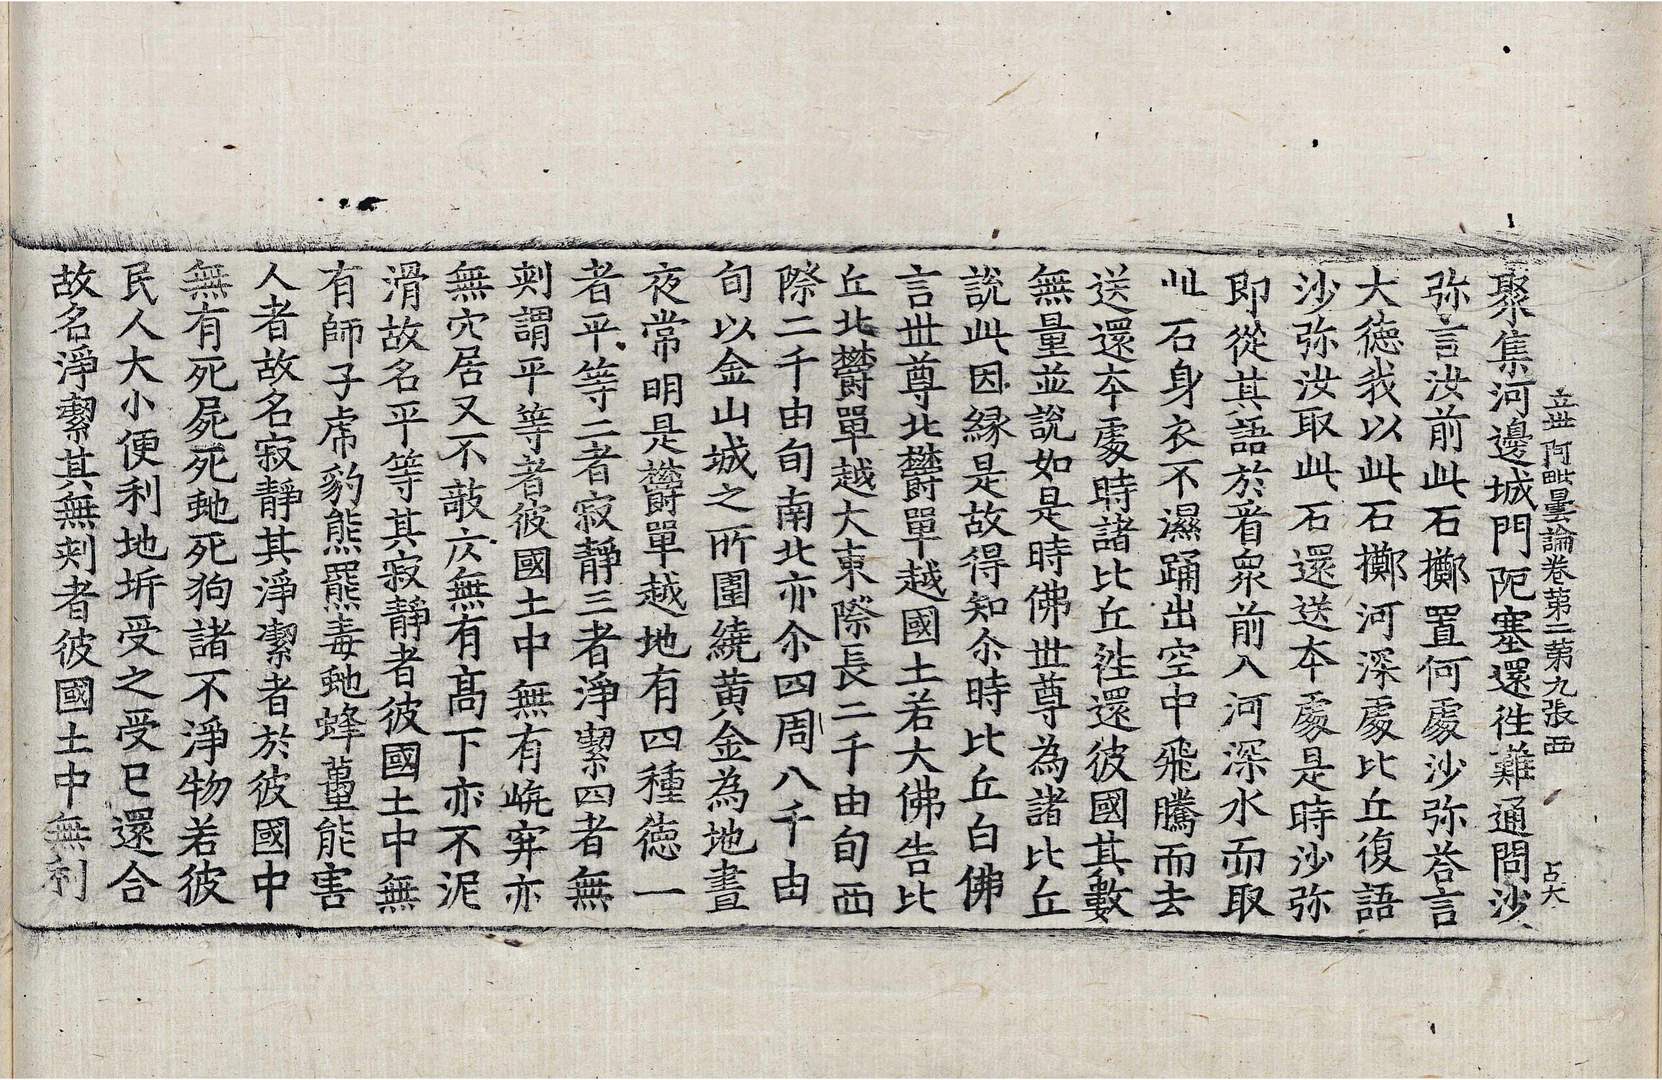 立世阿毗曇論卷第二第九張西
占大
聚集河邊城門阨塞還徃難通問沙
弥言汝前此石擲置何處沙弥荅言
大德我以此石擲河深處比丘復語
沙弥汝取此石還送本處是時沙弥
即從其語於看衆前入河深水而取
此石身衣不濕踊出空中飛騰而去
送還夲處時諸比丘徃還彼國其數
無量並說如是時佛世尊為諸比丘
說此因縁是故得知尒時比丘白佛
言世尊北欝單越國土若大佛告比
丘北欝單越大東際長二千由旬西
際二千由旬南北亦尒四周八千由
旬以金山城之所圍繞黄金為地晝
夜常明是欝單越地有四種德一
者平等二者寂靜三者淨潔四者無
刾謂平等者彼國土中無有坑穽亦
無穴居又不敲仄無有髙下亦不泥
滑故名平等其寂靜者彼國土中無
有師子虎豹熊羆毒虵蜂蠆能害
人者故名寂靜其淨潔者於彼國中
無有死屍死虵死狗諸不淨物若彼
民人大小便利地坼受之受已還合
故名淨潔其無刾者彼國土中無利